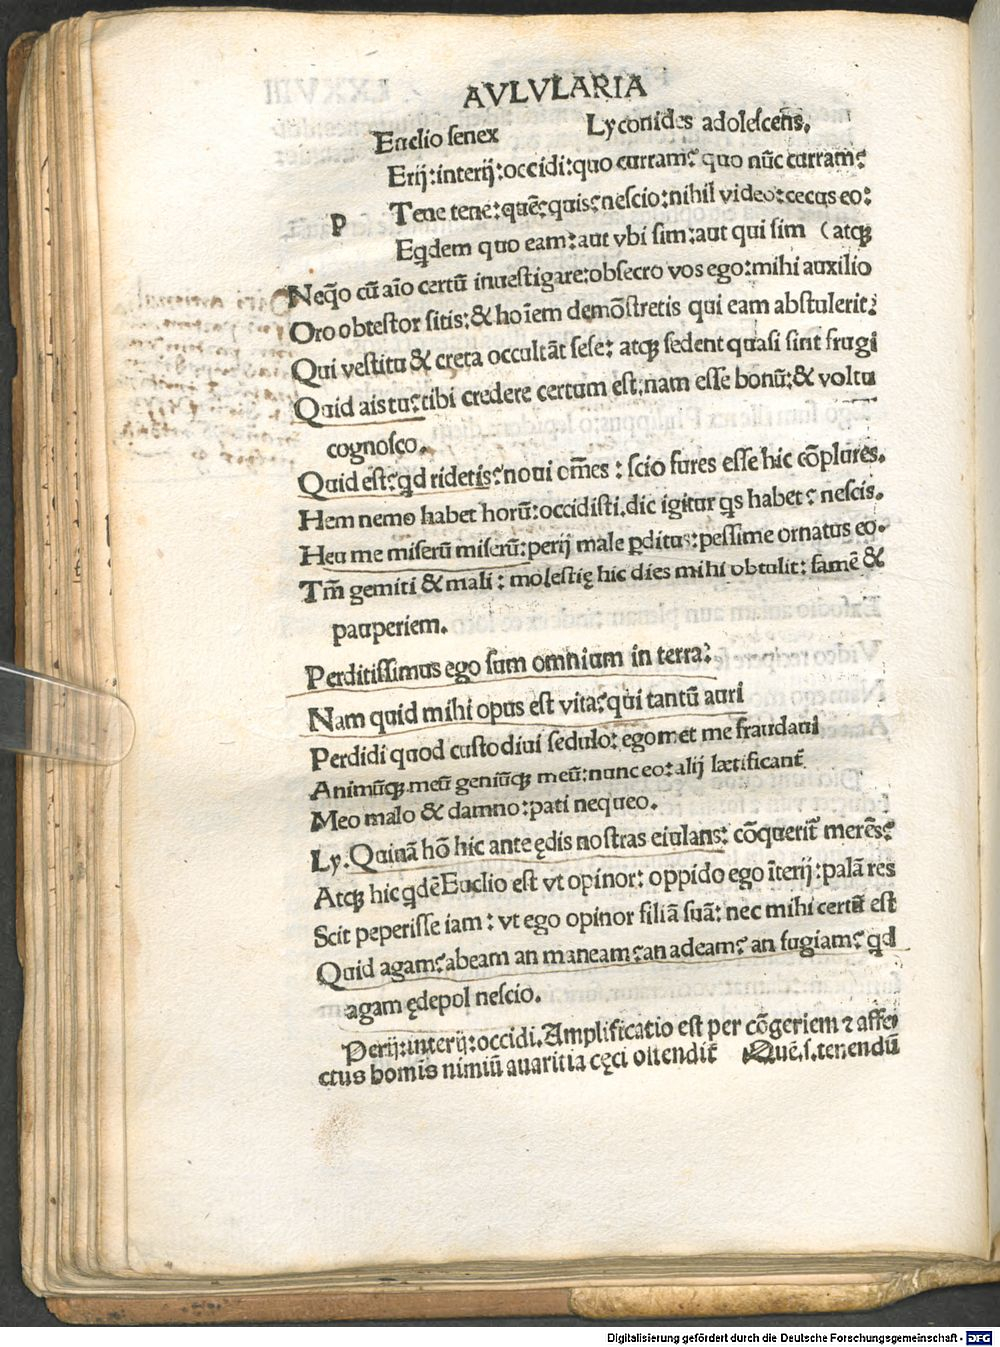 AVLVLARIA
Euclio senex Lyconides adolescẽs.
P Erij:interij:occidi:quo curram? quo nũc curram?
Tene tene:quẽ?quis?nescio:nihil video:cecus eo:
Eqdem quo eam:aut vbi sim:aut qui sim (atqꝫ
Neq̃o cũ aĩo certũ inuestigare:obsecro vos ego:mihi auxilio
Oro obtestor sitis:& hoĩem demõstretis qui eam abstulerit?
Qui vestitu & creta occultãt sese: atqꝫ sedent quasi sint frugi
Quid ais tu?tibi credere certum est:nam esse bonũ:& voltu
cognosco.
Quid est?qd ridetis?noui om̃es : scio fures esse hic cõplures.
Hem nemo habet horũ:occidisti.dic igitur qs habet? nescis.
Heu me miserũ miserũ:perij male ꝑditus:pessime ornatus eo.
Tm̃ gemiti & mali : molestię hic dies mihi obtulit: famẽ &
pauperiem.
Perditissimus ego sum omnium in terra:
Nam quid mihi opus est vita?qui tantũ auri
Perdidi quod custodiui sedulo: egomet me fraudaui
Animũqꝫ meũ geniũqꝫ meũ:nunc eo:alij lætificant̃
Meo malo & damno:pati nequeo.
Ly.Quinã hõ hic ante ędis nostras eiulans: cõquerit̃ merẽs?
Atqꝫ hic qdẽ Euclio est vt opinor: oppido ego ĩterij:palã res
Scit peperisse iam : vt ego opinor filiã suã: nec mihi certũ est
Quid agam?abeam an maneam?an adeam? an fugiam? qd
agam ędepol nescio.
Perij:interij:occidi.Amplificatio est per cõgeriem ⁊ affe
ctus homĩs nimiũ auaritia cęci ostendit̃ Quẽ.s.tenendũ
Digitalisierung gefördert durch die Deutsche Forschungsgemeinschaft - DFG